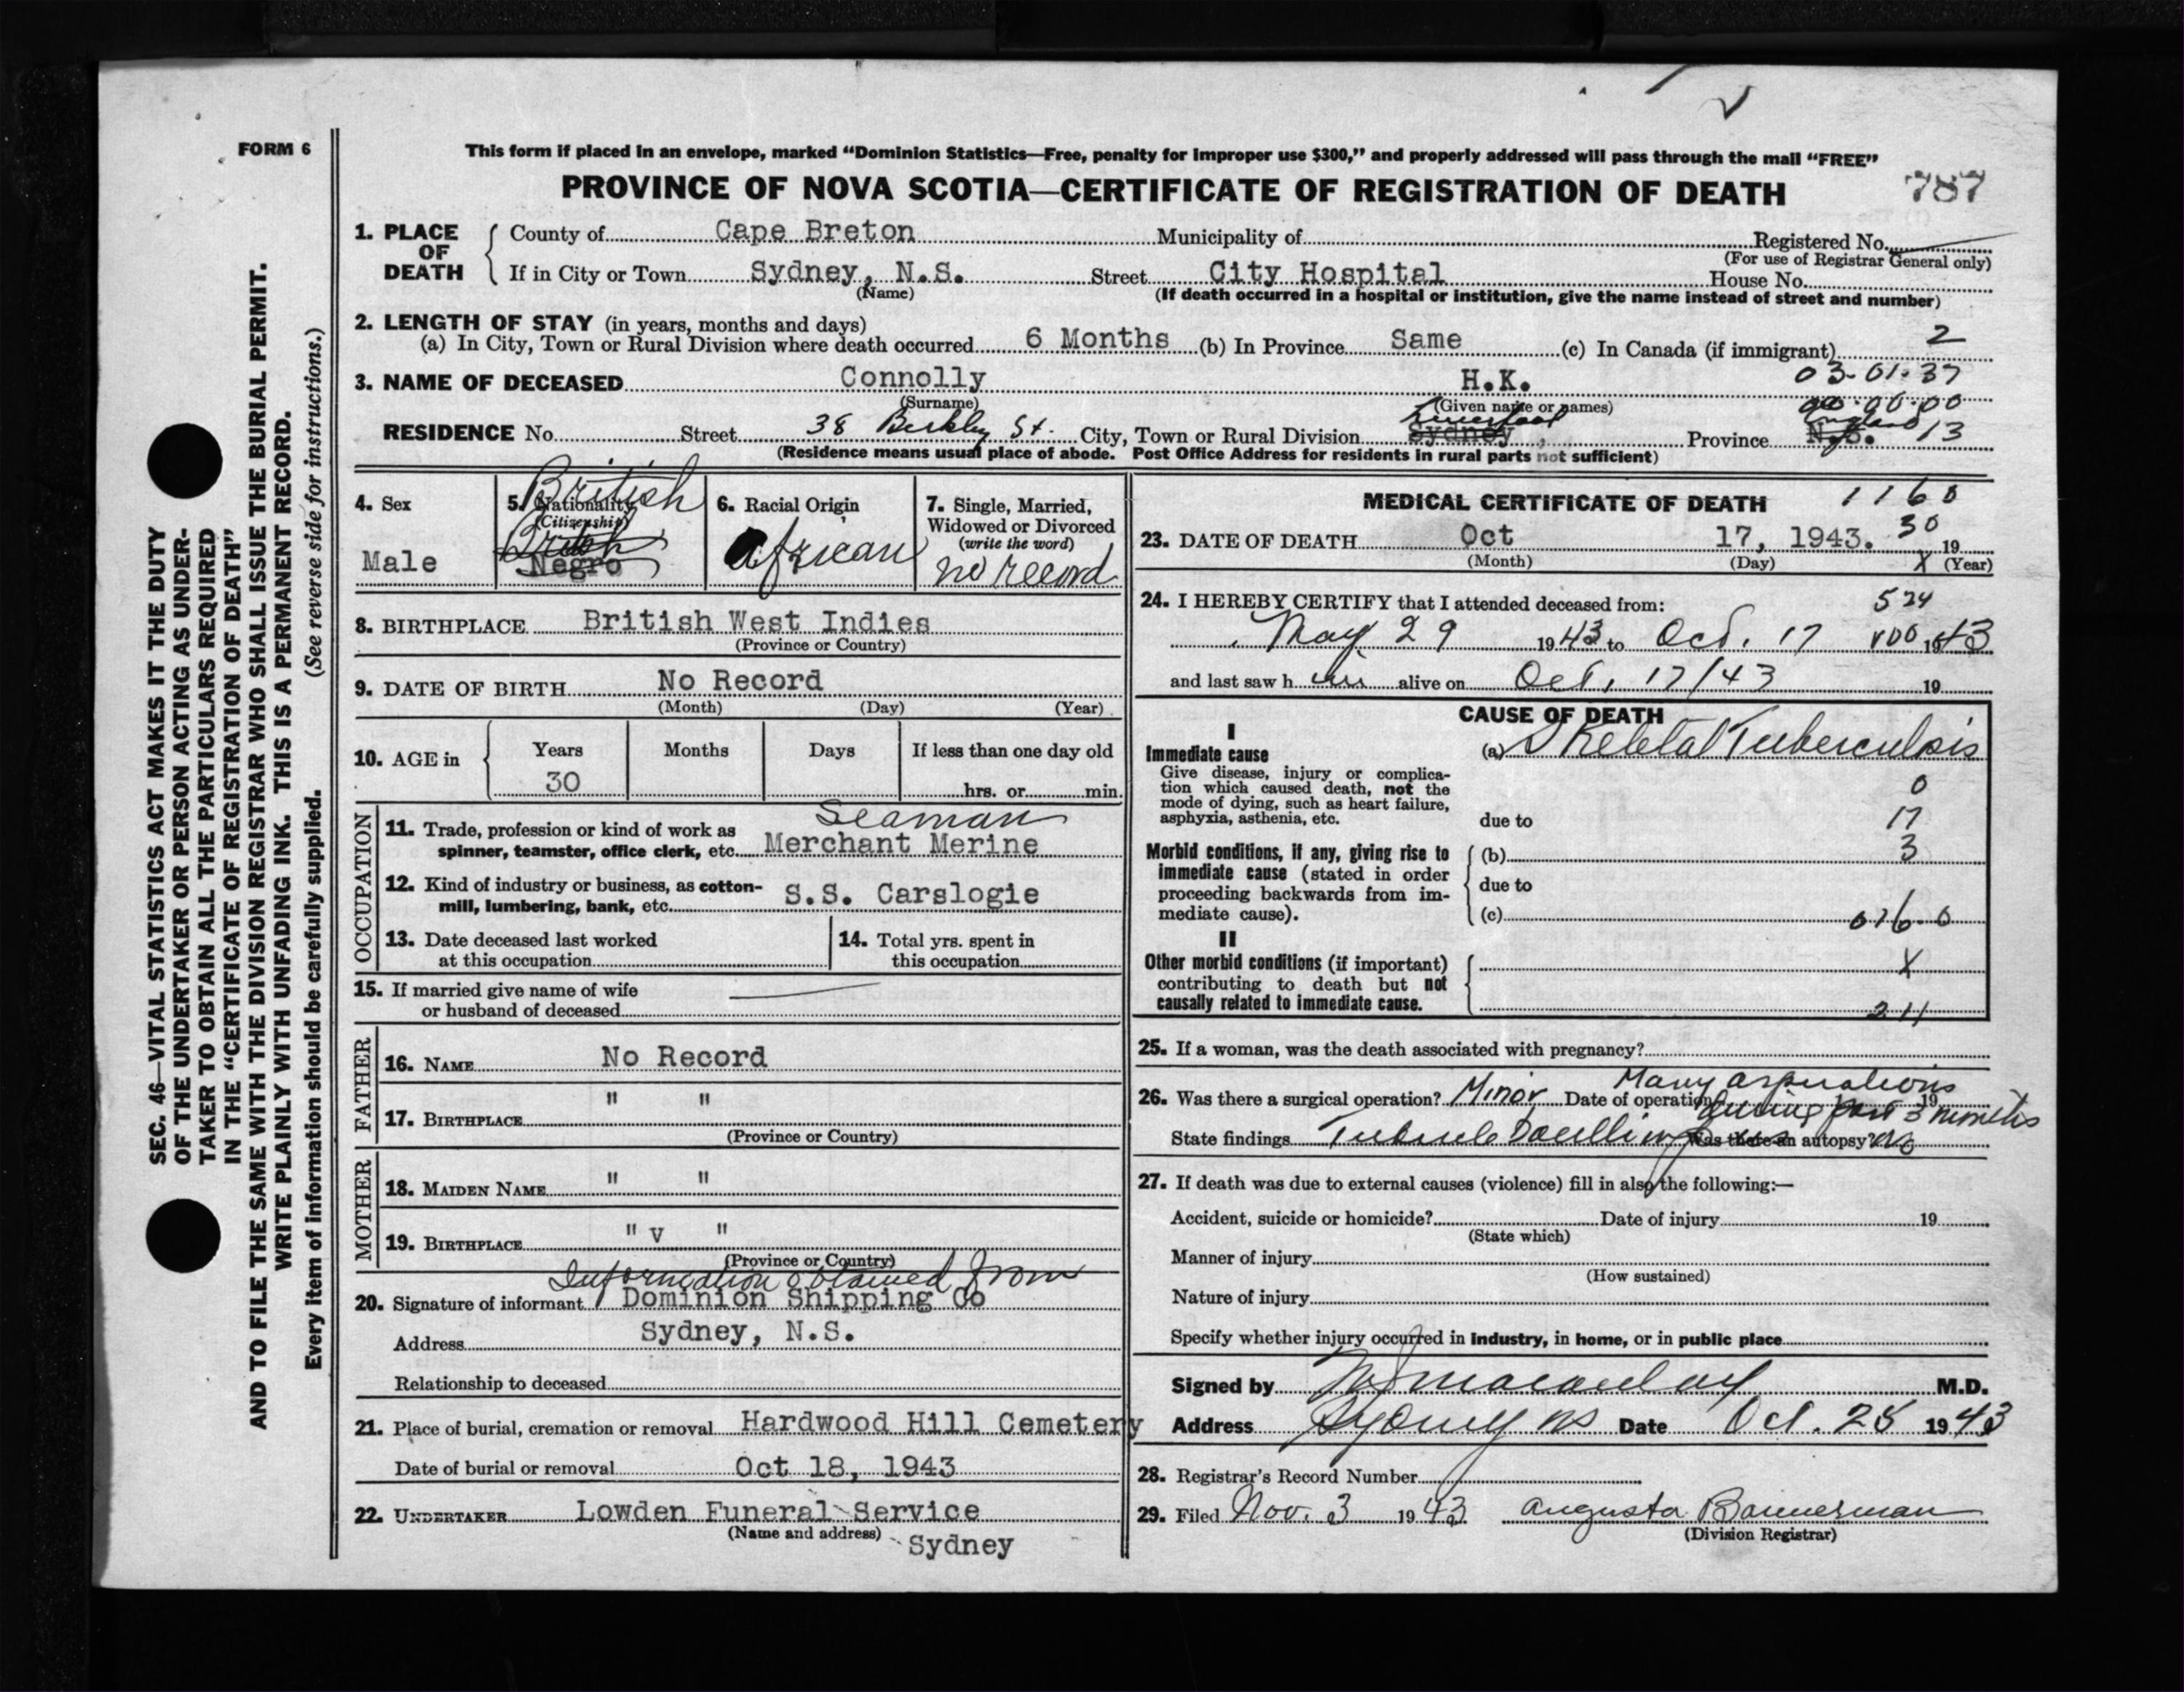 FORM 6
This form if placed in an envelope, marked “Dominion Statistics—Free, penalty for improper use $300,” and properly addressed will pass through the mail “FREE”
PROVINCE OF NOVA SCOTIA—CERTIFICATE OF REGISTRATION OF DEATH
787
SEC. 46—VITAL STATISTICS ACT MAKES IT THE DUTY
OF THE UNDERTAKER OR PERSON ACTING AS UNDER-
TAKER TO OBTAIN ALL THE PARTICULARS REQUIRED
IN THE “CERTIFICATE OF REGISTRATION OF DEATH”
AND TO FILE THE SAME WITH THE DIVISION REGISTRAR WHO SHALL ISSUE THE BURIAL PERMIT.
WRITE PLAINLY WITH UNFADING INK. THIS IS A PERMANENT RECORD.
Every item of information should be carefully supplied. (See reverse side for instructions.)
1. PLACE OF DEATH
County of Cape Breton Municipality of Registered No.
(For use of Registrar General only)
If in City or Town Sydney, N.S. Street City Hospital House No.
(Name) (If death occurred in a hospital or institution, give the name instead of street and number)
2. LENGTH OF STAY (in years, months and days)
(a) In City, Town or Rural Division where death occurred 6 Months (b) In Province Same (c) In Canada (if immigrant) 2
03-01-37
3. NAME OF DECEASED Connolly H.K.
(Surname) (Given name or names) 00.00.00
Liverpool England
RESIDENCE No. Street 38 Berkley St. City, Town or Rural Division Sydney, Province N.S. 13
(Residence means usual place of abode. Post Office Address for residents in rural parts not sufficient)
4. Sex
Male
5. Nationality
(Citizenship)
British
British
Negro
6. Racial Origin
African
7. Single, Married,
Widowed or Divorced
(write the word)
no record
8. BIRTHPLACE British West Indies
(Province or Country)
9. DATE OF BIRTH No Record
(Month) (Day) (Year)
10. AGE in
Years Months Days If less than one day old
30 hrs. or min.
OCCUPATION
Seaman
11. Trade, profession or kind of work as
spinner, teamster, office clerk, etc. Merchant Merine
12. Kind of industry or business, as cotton-
mill, lumbering, bank, etc. S.S. Carslogie
13. Date deceased last worked
at this occupation
14. Total yrs. spent in
this occupation
15. If married give name of wife
or husband of deceased
FATHER
16. NAME No Record
17. BIRTHPLACE " "
(Province or Country)
MOTHER
18. MAIDEN NAME " "
19. BIRTHPLACE " v "
(Province or Country)
Information obtained from
20. Signature of informant Dominion Shipping Co
Address Sydney, N.S.
Relationship to deceased
21. Place of burial, cremation or removal Hardwood Hill Cemetery
Date of burial or removal Oct 18, 1943
22. UNDERTAKER Lowden Funeral Service
(Name and address) Sydney
MEDICAL CERTIFICATE OF DEATH 1160
30
23. DATE OF DEATH Oct 17, 1943. 19
(Month) (Day) X (Year)
24. I HEREBY CERTIFY that I attended deceased from: 524
May 29 1943 to Oct. 17 100 1943
and last saw h im alive on Oct, 17/43 19
CAUSE OF DEATH
I
Immediate cause
(a) Skeletal Tuberculosis
Give disease, injury or complica-
tion which caused death, not the
mode of dying, such as heart failure,
asphyxia, asthenia, etc.
0
due to 17
Morbid conditions, if any, giving rise to
immediate cause (stated in order
proceeding backwards from im-
mediate cause).
(b) 3
due to
(c) 016-0
II
Other morbid conditions (if important)
contributing to death but not
causally related to immediate cause.
X
211
25. If a woman, was the death associated with pregnancy?
Many aspirations
26. Was there a surgical operation? Minor Date of operation 19
during past 3 months
State findings Was there an autopsy no
27. If death was due to external causes (violence) fill in also the following:—
Accident, suicide or homicide? Date of injury 19
(State which)
Manner of injury
(How sustained)
Nature of injury
Specify whether injury occurred in industry, in home, or in public place
Signed by Macaulay M.D.
Address Sydney NS Date Oct. 25 1943
28. Registrar's Record Number
29. Filed Nov. 3 1943 Augusta Bannerman
(Division Registrar)